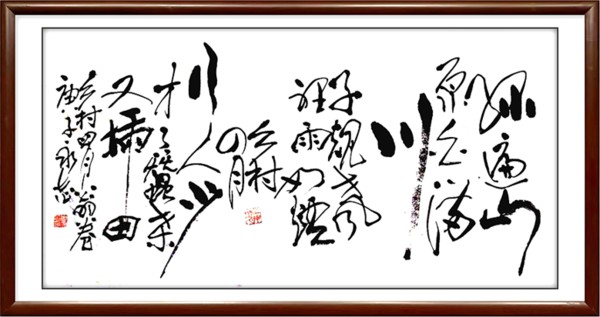 绿遍山
原白满
川
子规声
裡雨如烟
乡村
四月
闲人少
才了蚕桑
又插田
乡村四月 翁卷
庚子永